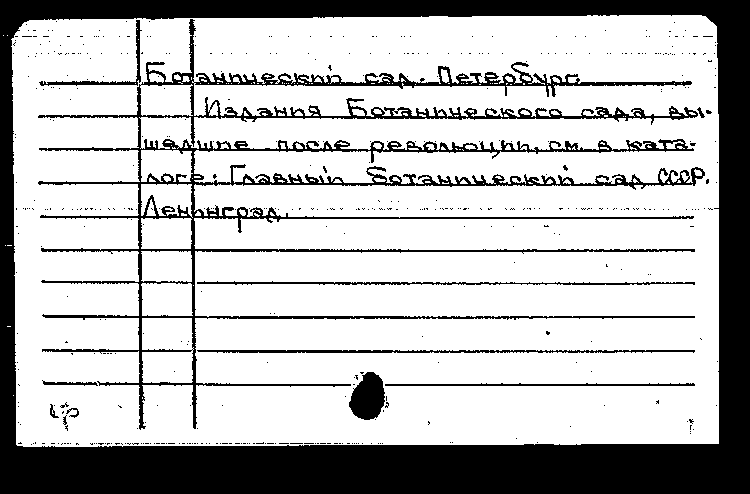 Ботанический сад. Петербург.
Издания Ботанического сада, вы-
шедшие после революции, см. в ката-
логе: Главный ботанический сад СССР.
Ленинград.